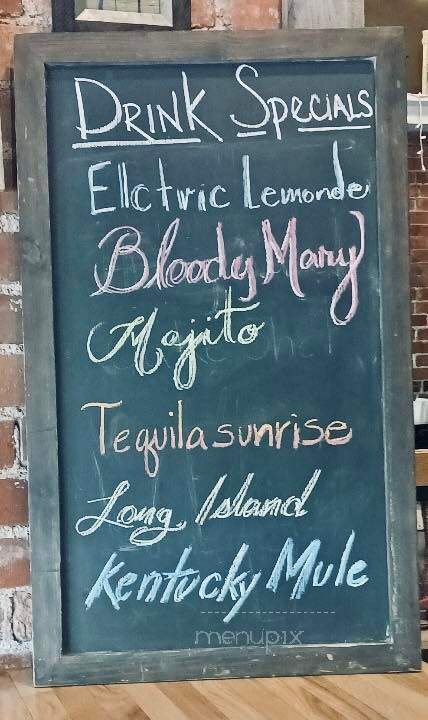 DRINK SPECIALS
Ellctric Lemonde
Bloody Mary
Mojito
Tequila sunrise
Long Island
Kentucky Mule
menupix